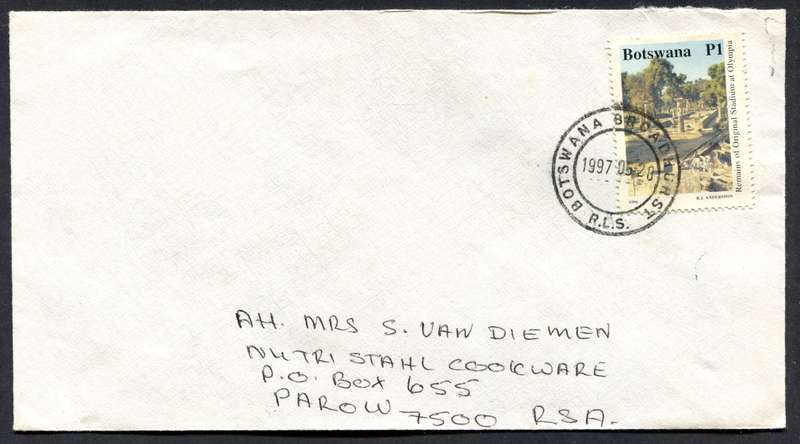 Botswana P1
Remains of Original Stadium at Olympia
BOTSWANA BROADHURST
1997·05·20
R.L.S.
Att. MRS S. VAN DIEMEN
NUTRI STAHL COOKWARE
P.O. BOX 655
PAROW 7500 RSA.